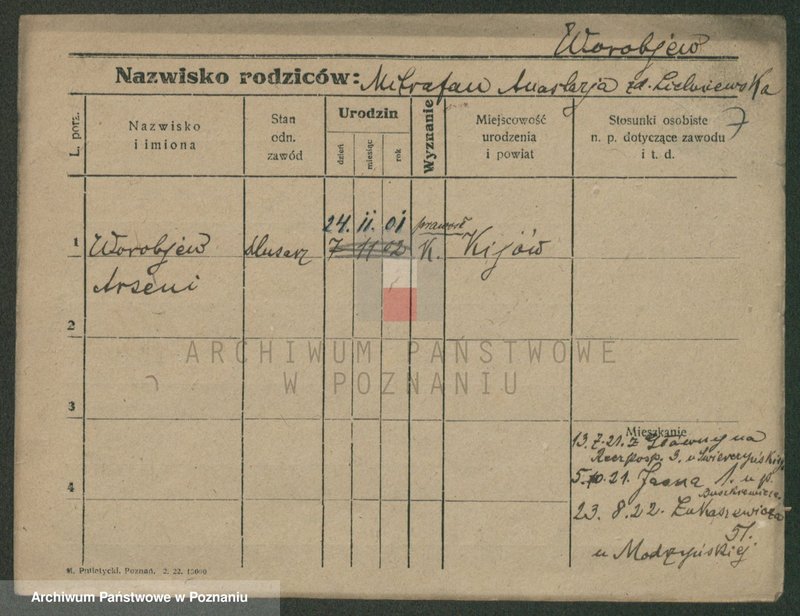 Worobjew
Nazwisko rodziców: Mitrofan Anastazja zd.
7
L. porz.
Nazwisko
i imiona
Stan
odn.
zawód
Urodzin
dzień
miesiąc
rok
Wyznanie
Miejscowość
urodzenia
i powiat
Stosunki osobiste
n. p. dotyczące zawodu
i t. d.
24. ii. 01
1
Worobjew
ślusarz
7 11 02
K.
Kijów
Arseni
2
ARCHIWUM PAŃSTWOWE
W POZNANIU
3
Mieszkanie
13.7.21. z Główny na
Rzeczposp. 3. u
5. 10. 21. Jasna 1. u p.
4
23. 8. 22. Łukaszewicza
51.
u Modrzyńskiej
M. Putiatycki, Poznań. 2. 22.
Archiwum Państwowe w Poznaniu